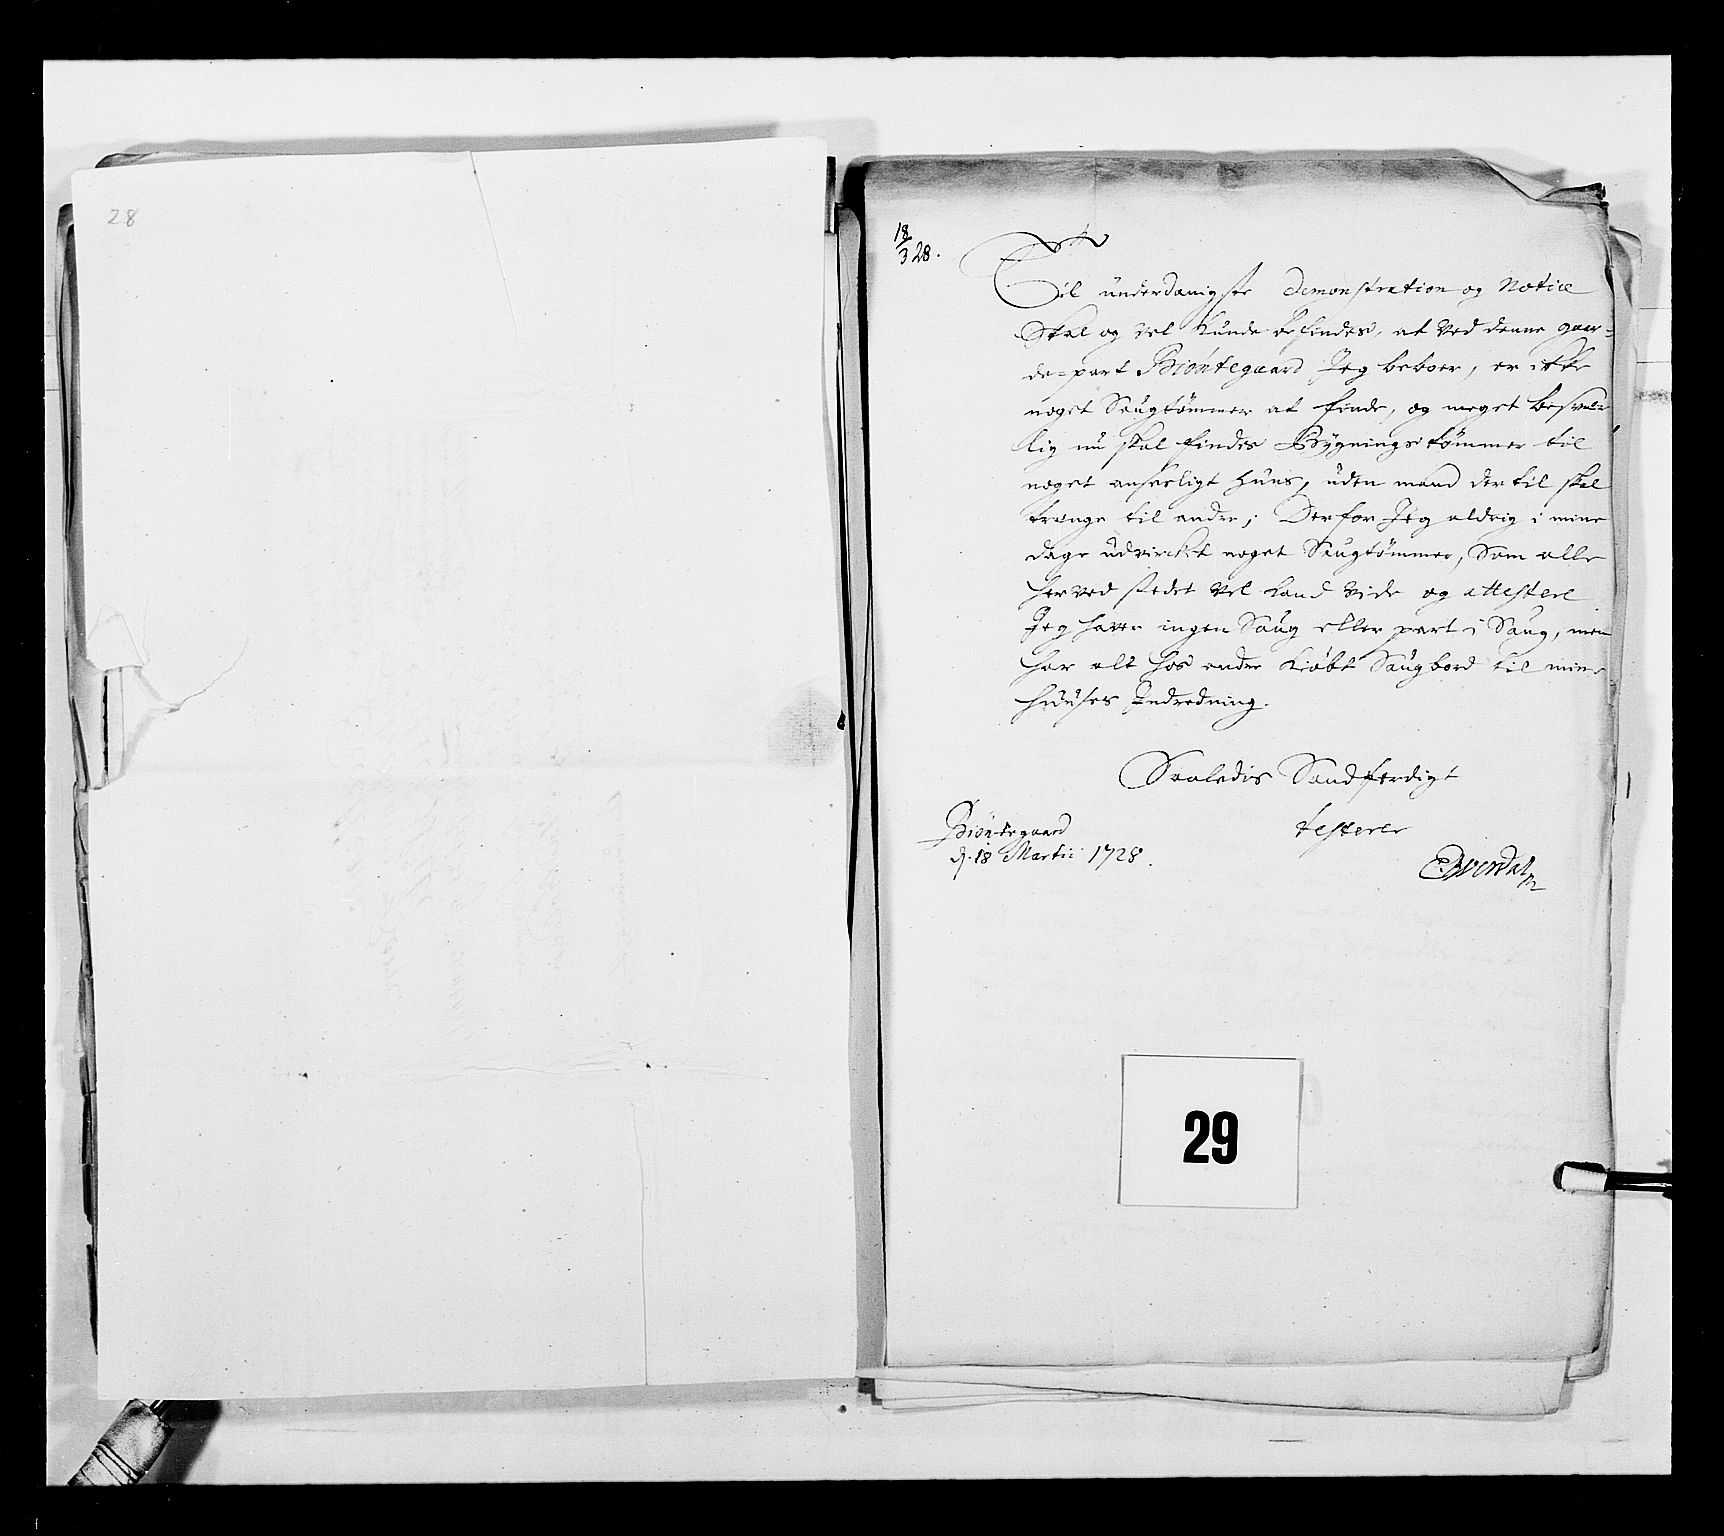 28
18/3 28.
Til underdanigste Demonstration og Notice
Skal og vel kunde befindes, at ved denne gaar-
de-part Biøntegaard Jeg beboer, er ikke
noget Saugtømmer at finde, og meget besvær
lig nu skal findes Bygningstømmer til
noget anseeligt Huus, uden mand der til skal
trænge til andre; Derfor Jeg aldrig i mine
dage udvirckt noget Saugtømmer, Som alle
her ved stedet vel kand vide og attestere
Jeg haver ingen Saug eller part i Saug, men
har alt hos andre kiøbt Saugbord til mine
Huuses Indredning.
Saaledis Sandfærdigt
testerer
Biøntegaard
d. 18 Martii 1728.
29